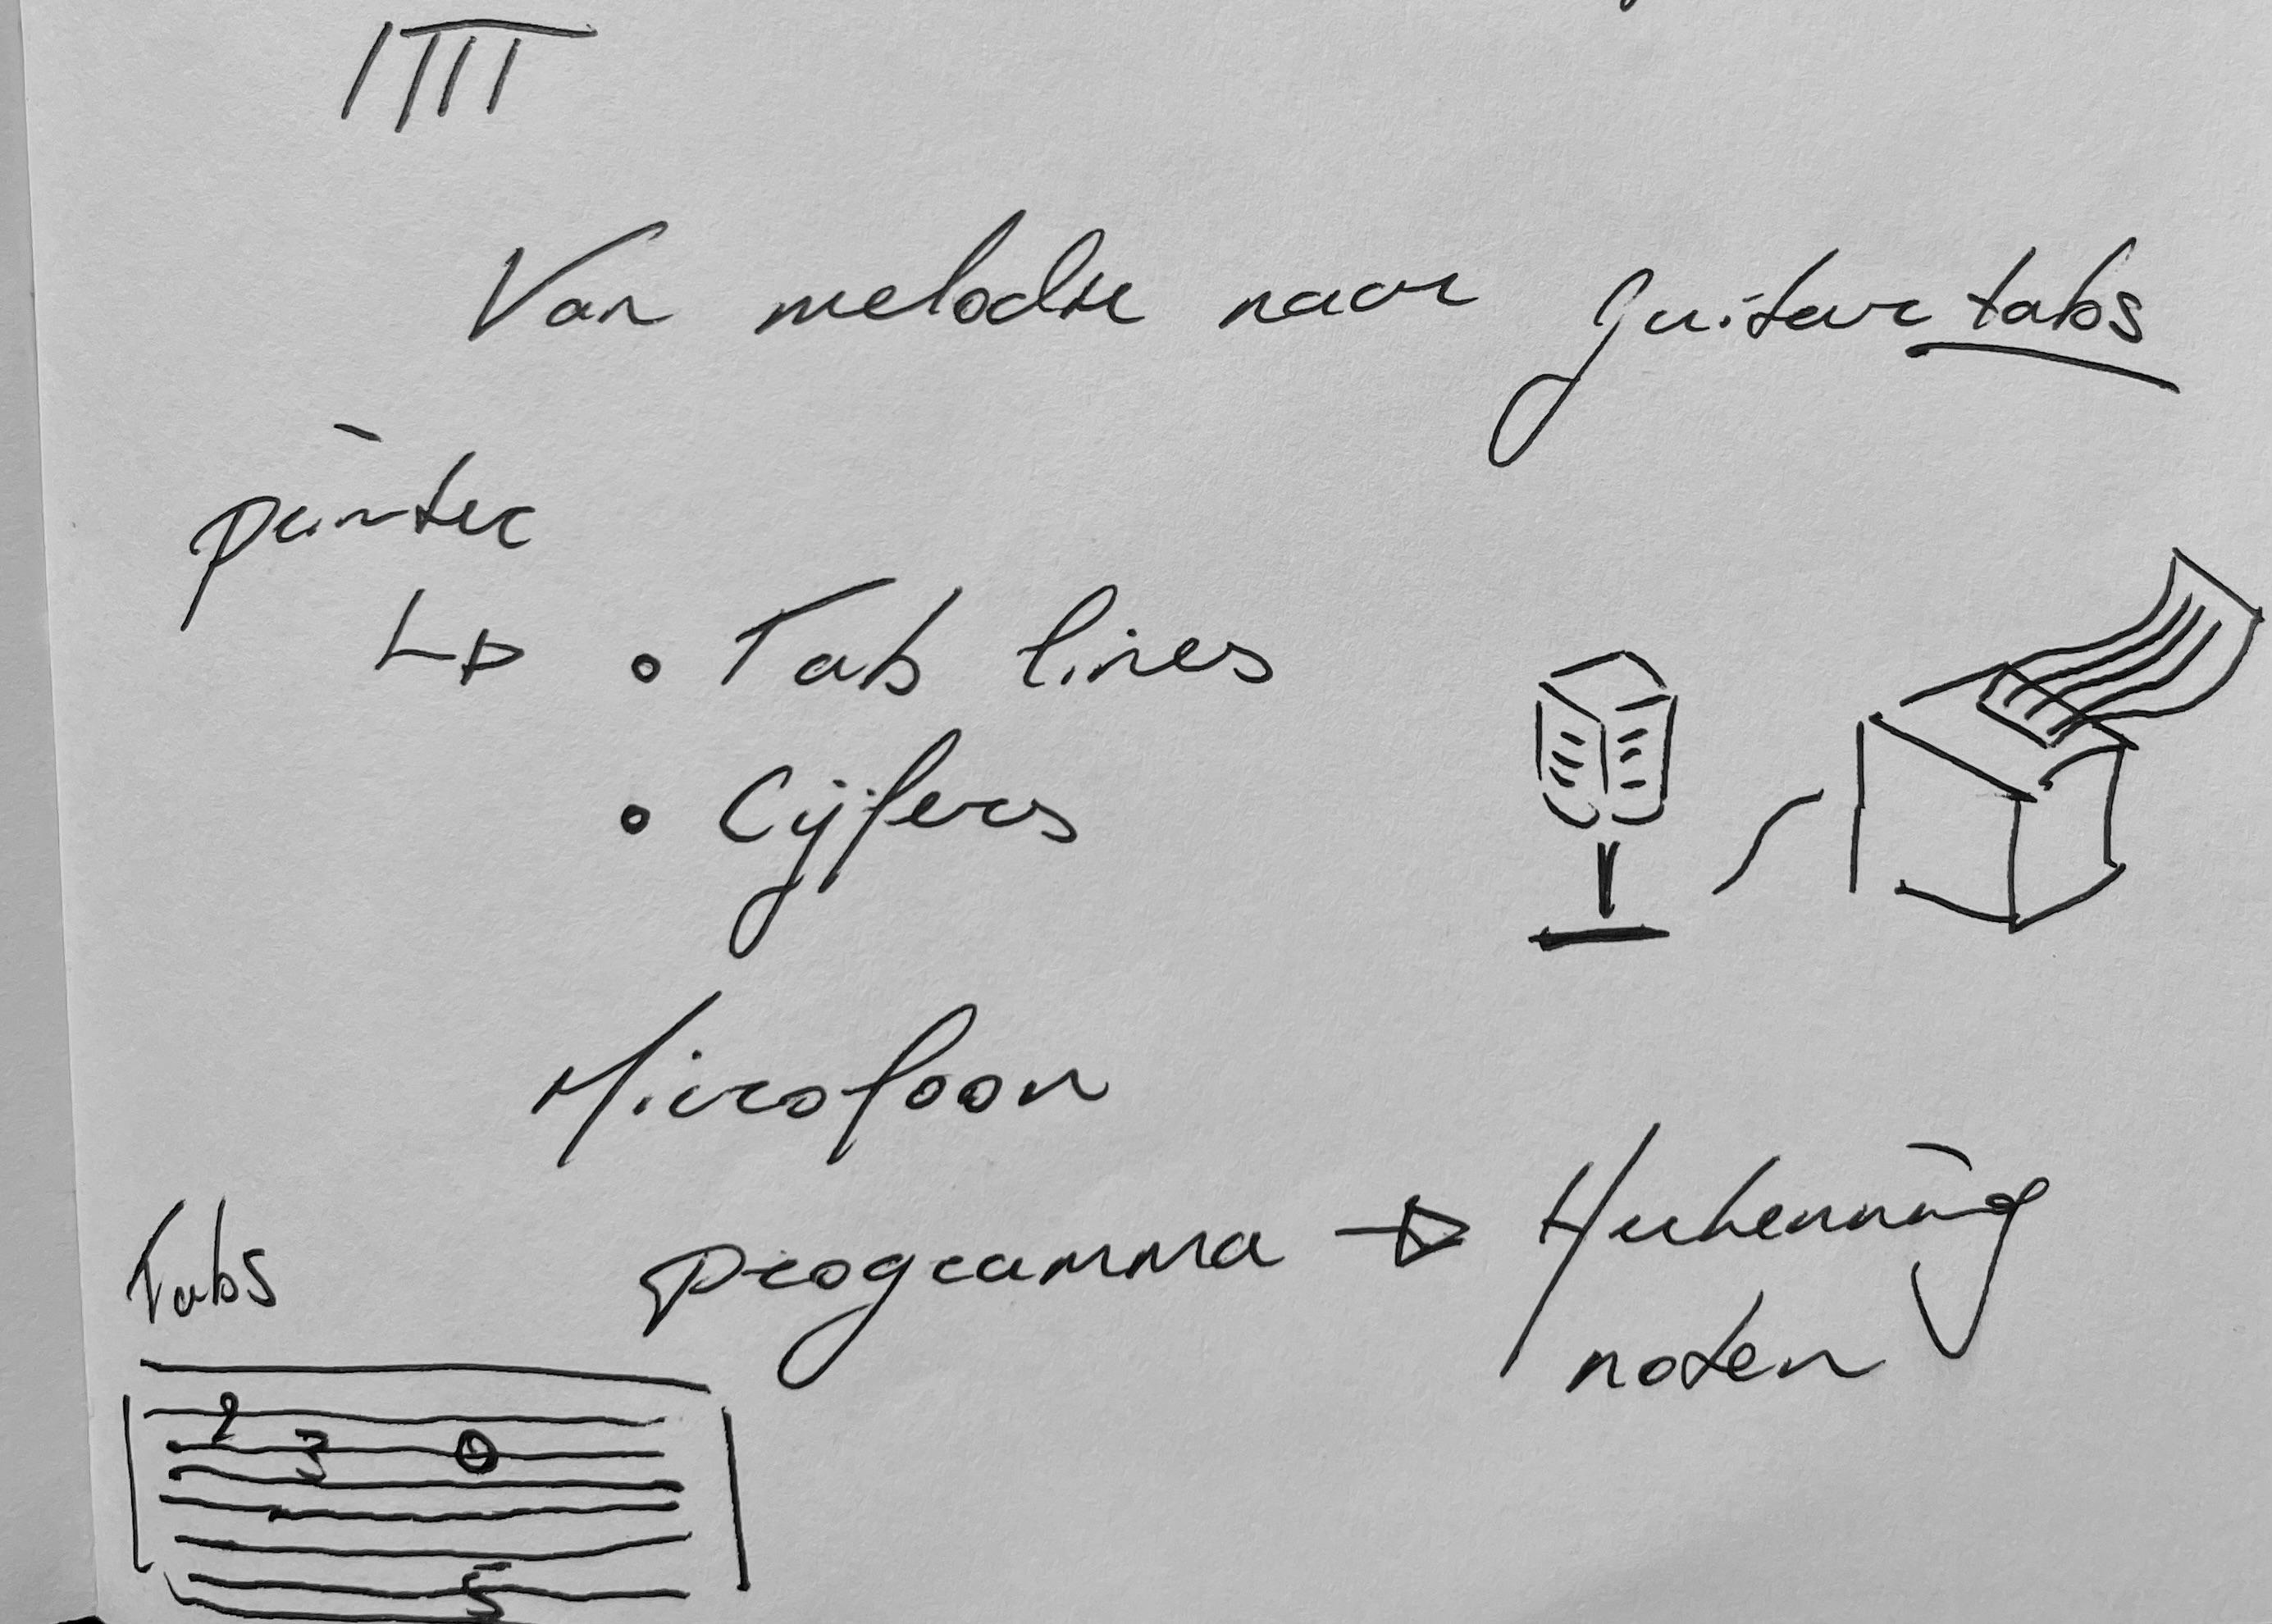 ITTT
Van melodie naar guitar tabs
printer
• Tab lines
• Cijfers
Microfoon
programma → Herkenning
noten
Tabs
2
3 0
5